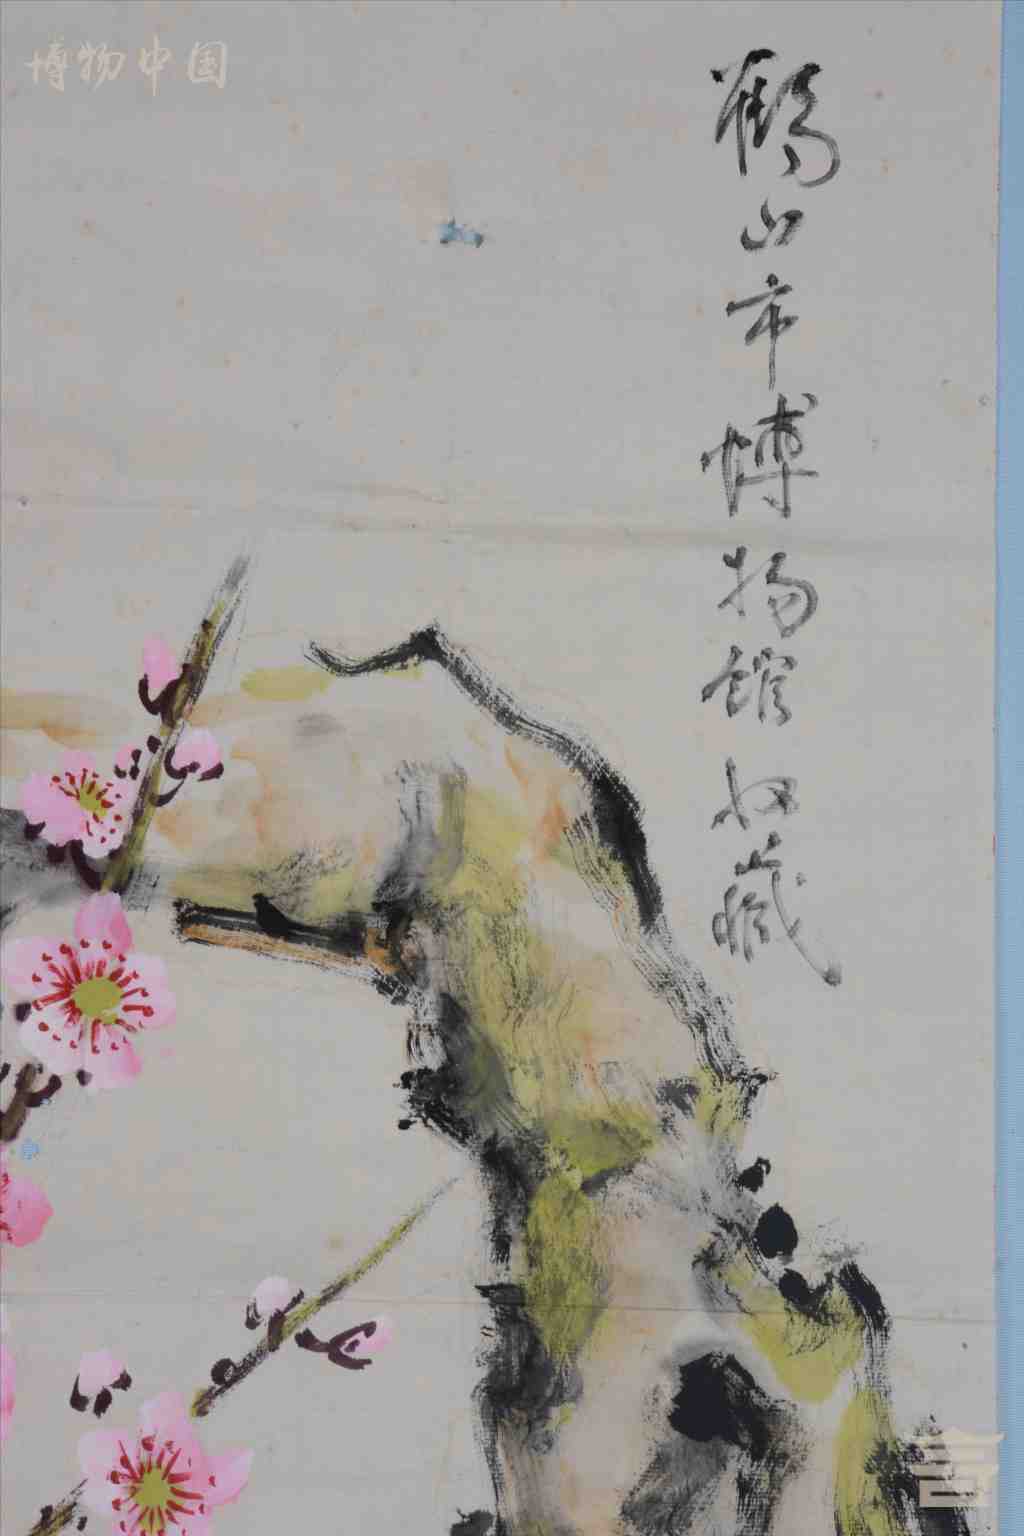 博物中国
鶴山市博物館收藏